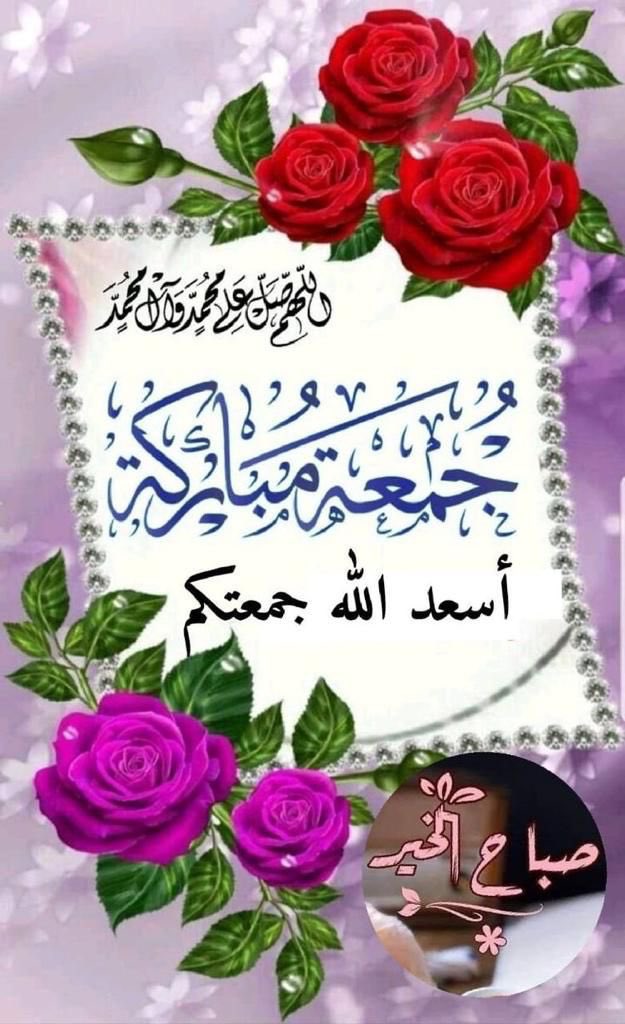 اللّهم صّلِ على محُمّدٍ وآل محُمّدَ
جُمعة مُباركة
أسعد الله جمعتكم
صباح الخير